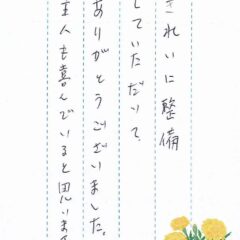 きれいに整備
していただいて
ありがとうございました。
主人も喜んでいると思いま